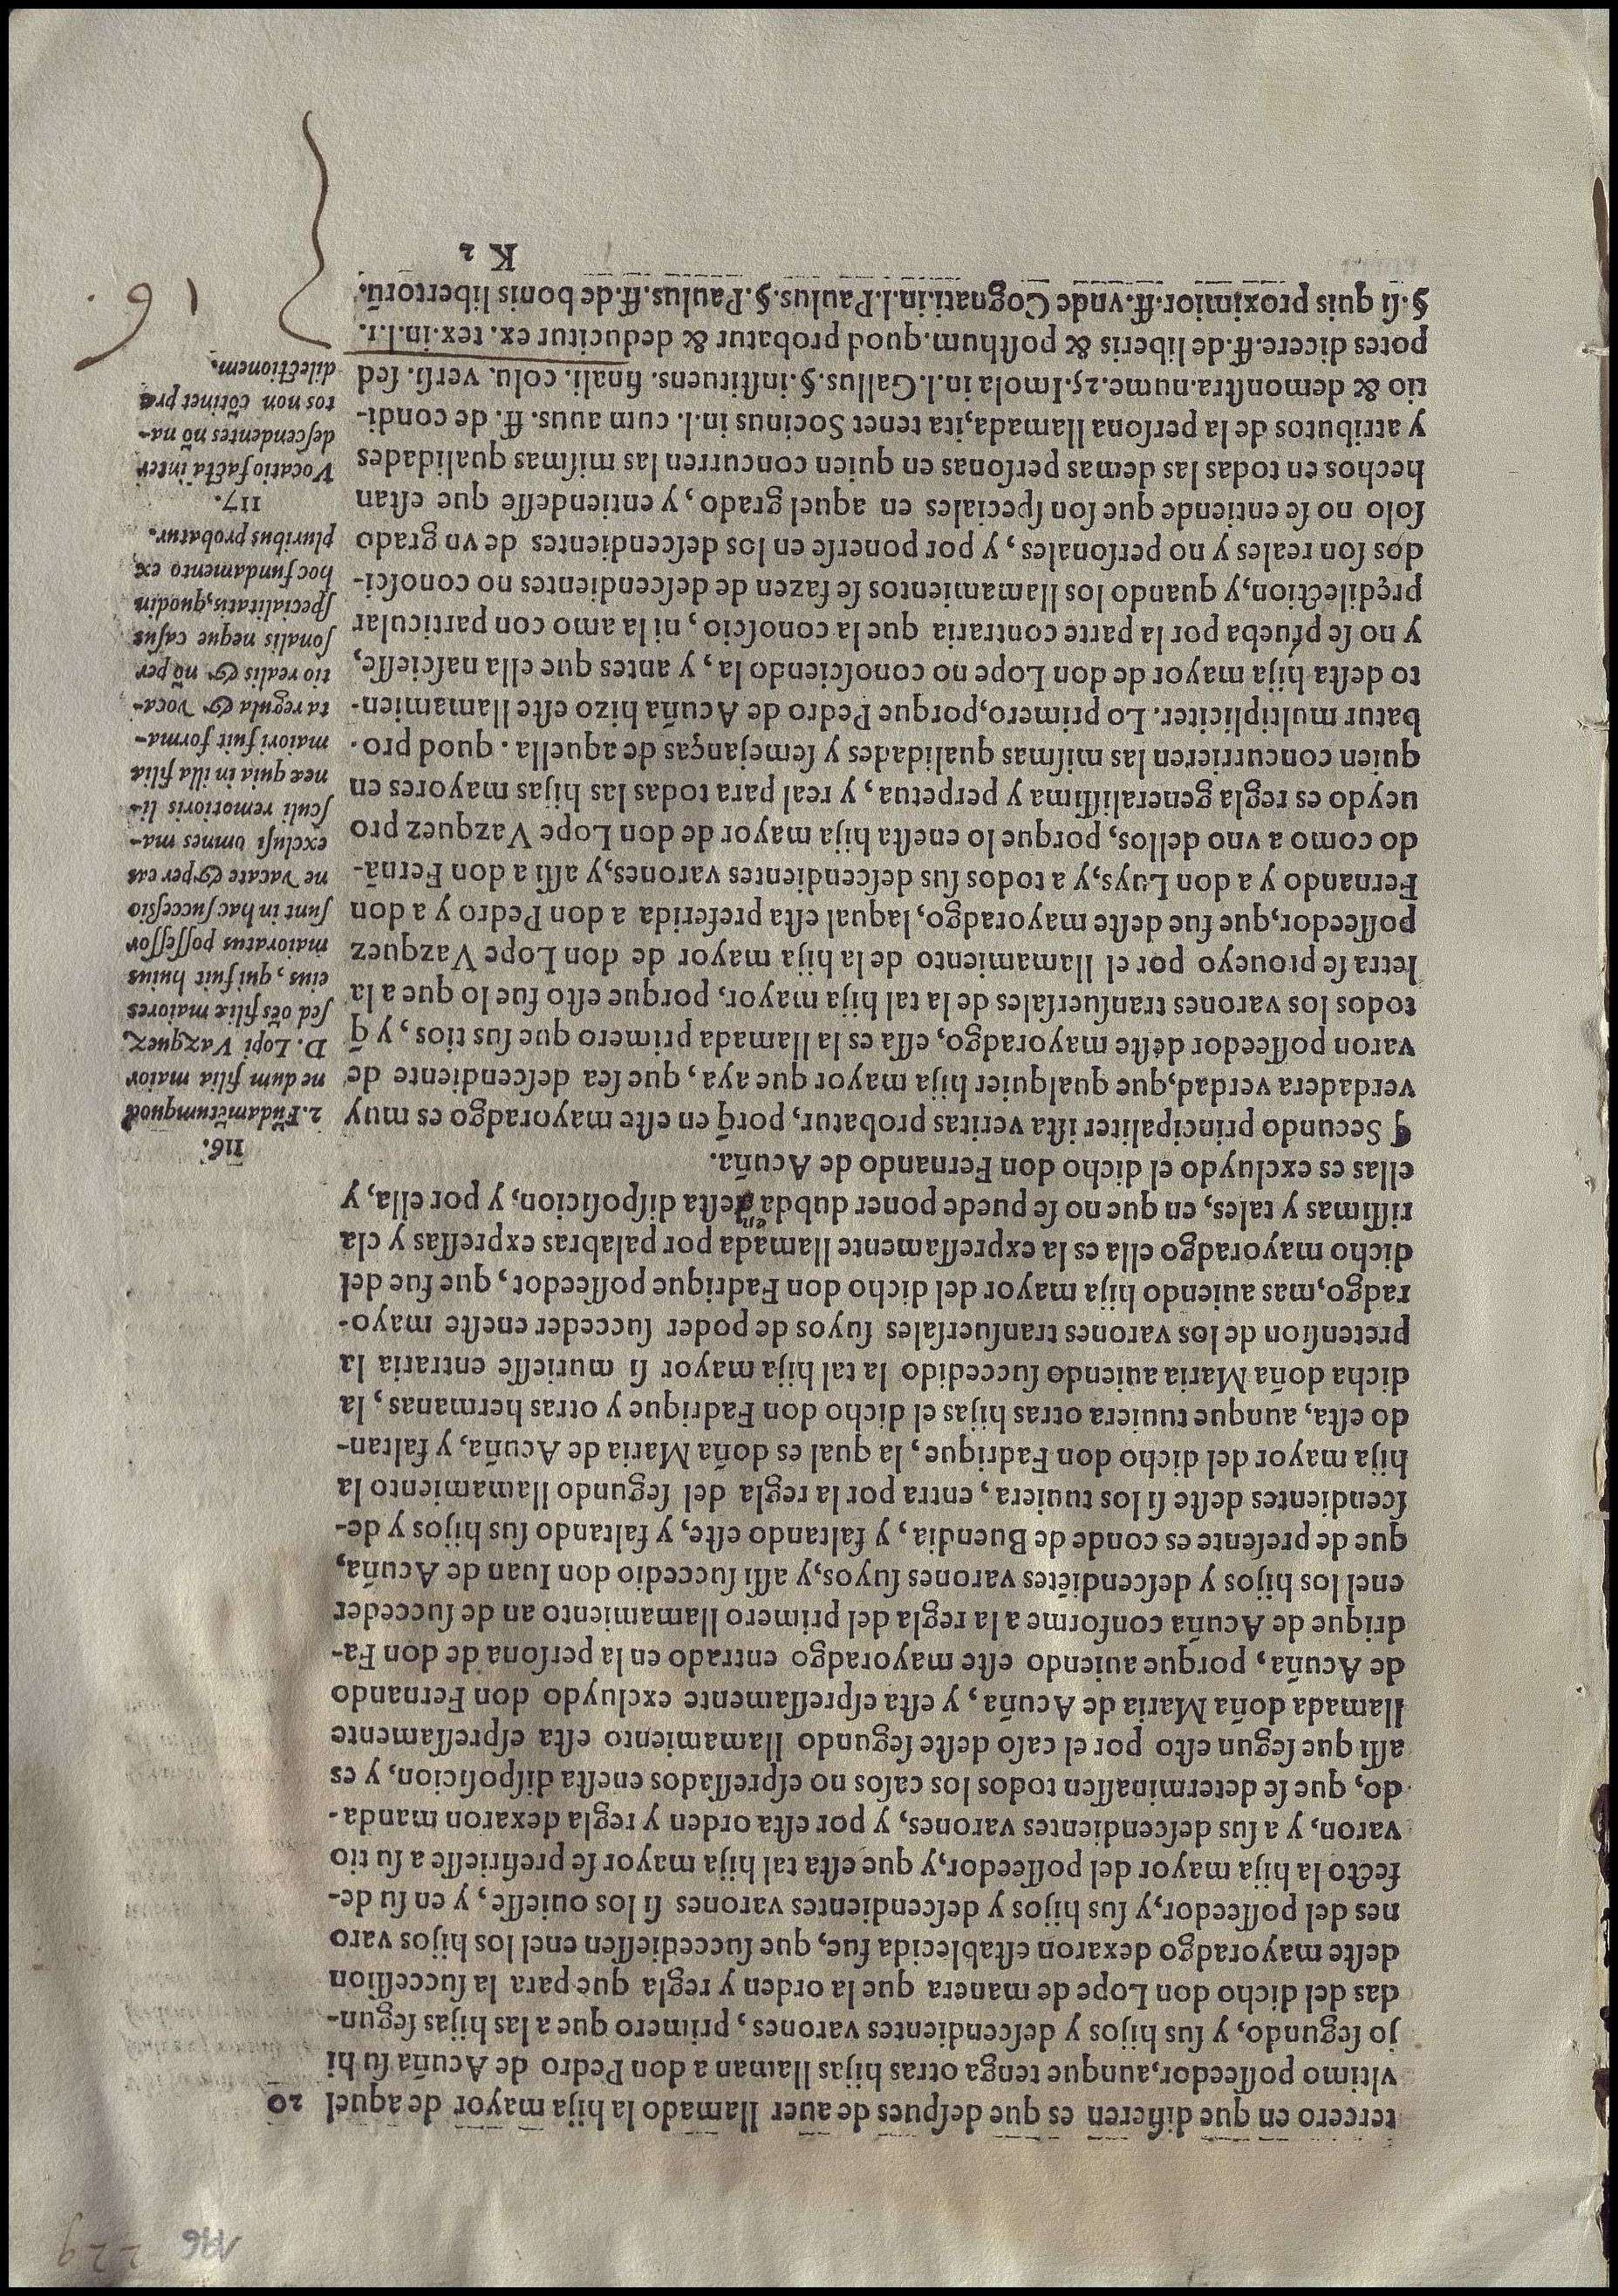 196
229
20
tercero en que difieren es que deſpues de auer llamado la hija mayor de aquel
vltimo poſſeedor, aunque tenga otras hijas llaman a don Pedro de Acuña ſu hi
jo ſegundo, y ſus hijos y deſcendientes varones, primero que a las hijas ſegun-
das del dicho don Lope de manera que la orden y regla que para la ſucceſſion
deſte mayoradgo dexaron eſtablecida fue, que ſuccedieſſen enel los hijos varo
nes del poſſeedor, y ſus hijos y deſcendientes varones ſi los ouieſſe, y en ſu de-
fecto la hija mayor del poſſeedor, y que eſta tal hija mayor ſe prefirieſſe a ſu tio
varon, y a ſus deſcendientes varones, y por eſta orden y regla dexaron manda-
do, que ſe determinaſſen todos los caſos no eſpreſſados eneſta diſpoſicion, y es
aſſi que ſegun eſto por el caſo deſte ſegundo llamamiento eſta eſpreſſamente
llamada doña Maria de Acuña, y eſta eſpreſſamente excluydo don Fernando
de Acuña, porque auiendo eſte mayoradgo entrado en la perſona de don Fa-
drique de Acuña conforme a la regla del primero llamamiento an de ſucceder
enel los hijos y deſcendiẽtes varones ſuyos, y aſſi ſuccedio don Iuan de Acuña,
que de preſente es conde de Buendia, y faltando eſte, y faltando ſus hijos y de-
ſcendientes deſte ſi los tuuiera, entra por la regla del ſegundo llamamiento la
hija mayor del dicho don Fadrique, la qual es doña Maria de Acuña, y faltan-
do eſta, aunque tuuiera otras hijas el dicho don Fadrique y otras hermanas, la
dicha doña Maria auiendo ſuccedido la tal hija mayor ſi murieſſe entraria la
pretenſion de los varones tranſuerſales ſuyos de poder ſucceder eneſte mayo-
radgo, mas auiendo hija mayor del dicho don Fadrique poſſeedor, que fue del
dicho mayoradgo ella es la expreſſamente llamada por palabras expreſſas y cla
riſſimas y tales, en que no ſe puede poner dubda en deſta diſpoſicion, y por ella, y
ellas es excluydo el dicho don Fernando de Acuña.
¶ Secundo principaliter iſta veritas probatur, porq̃ en eſte mayoradgo es muy
verdadera verdad, que qualquier hija mayor que aya, que ſea deſcendiente de
varon poſſeedor deſte mayoradgo, eſſa es la llamada primero que ſus tios, y q̃
todos los varones tranſuerſales de la tal hija mayor, porque eſto fue lo que a la
letra ſe proueyo por el llamamiento de la hija mayor de don Lope Vazquez
poſſeedor, que fue deſte mayoradgo, laqual eſta preferida a don Pedro y a don
Fernando y a don Luys, y a todos ſus deſcendientes varones, y aſſi a don Fernã-
do como a vno dellos, porque lo eneſta hija mayor de don Lope Vazquez pro
ueydo es regla generaliſſima y perpetua, y real para todas las hijas mayores en
quien concurrieren las miſmas qualidades y ſemejanças de aquella. quod pro-
batur multipliciter. Lo primero, porque Pedro de Acuña hizo eſte llamamien-
to deſta hija mayor de don Lope no conoſciendo la, y antes que ella naſcieſſe,
y no ſe prueba por la parte contraria que la conoſcio, ni la amo con particular
prędilection, y quando los llamamientos ſe fazen de deſcendientes no conoſci-
dos ſon reales y no perſonales, y por ponerſe en los deſcendientes de vn grado
ſolo no ſe entiende que ſon ſpeciales en aquel grado, y entiendeſſe que eſtan
hechos en todas las demas perſonas en quien concurren las miſmas qualidades
y atributos de la perſona llamada, ita tenet Socinus in.l. cum auus. ff. de condi-
tio & demonſtra. nume. 25. Imola in.l. Gallus. §. inſtituens. finali. colu. verſi. ſed
potes dicere. ff. de liberis & poſthum. quod probatur & deducitur ex. tex. in.l.1.
§. ſi quis proximior. ff. vnde Cognati. in.l. Paulus. §. Paulus. ff. de bonis libertorũ.
K 2
116.
2. Fũdamẽtum quod
ne dum filia maior
D. Lopi Vazquez
ſed oẽs filiæ maiores
eius, qui fuit huius
maioratus poſſeſſor
ſunt in hac ſucceſsio
ne vacate & per eas
excluſi omnes ma-
ſculi remotioris li-
neæ quia in illa filia
maiori fuit forma-
ta regula & voca-
tio realis & nõ per
ſonalis neque caſus
ſpecialitatis, quod in
hoc fundamento ex
pluribus probatur.
117.
Vocatio facta inter
deſcendentes nõ na-
tos non cõtinet præ
dilectionem.
16.